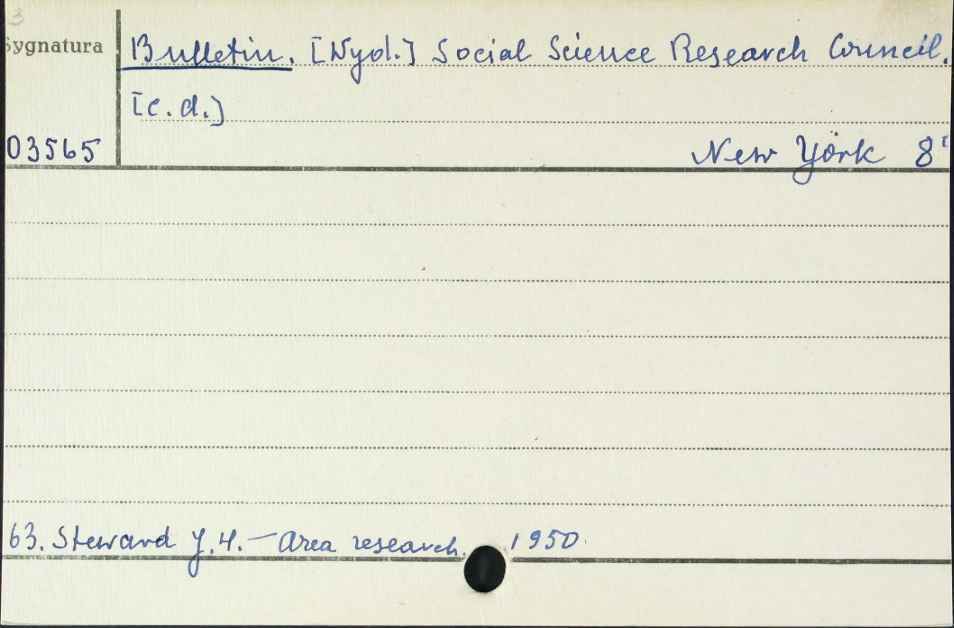 3
Sygnatura
Bulletin. [Wyd.] Social Science Research Council.
[c.d.]
03565
New York 8°
63. Steward J.H. — Area research. 1950